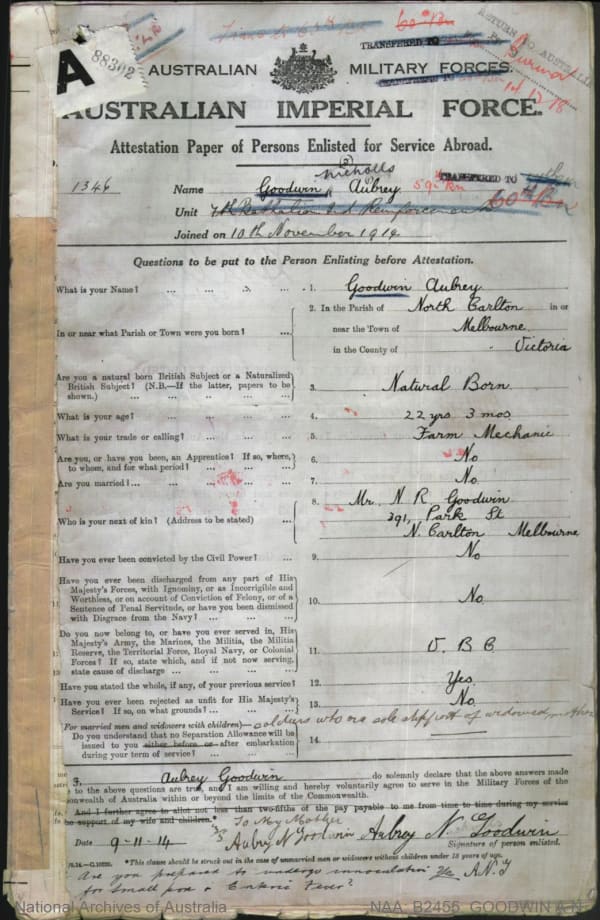 60th Bn
RETURN TO AUSTRALIA
TRANSFERRED TO
A
88302
AUSTRALIAN MILITARY FORCES.
AUSTRALIAN IMPERIAL FORCE.
Attestation Paper of Persons Enlisted for Service Abroad.
Nicholls
1346 Name Goodwin Aubrey. 59th Bn TRANSFERRED TO
Unit 7th Battalion 2nd Reinforcements 60th Bn
Joined on 10th November 1914
Questions to be put to the Person Enlisting before Attestation.
What is your Name? ... ... ... ... 1. Goodwin Aubrey.
In or near what Parish or Town were you born? ... 2. In the Parish of North Carlton in or
near the Town of Melbourne
in the County of Victoria
Are you a natural born British Subject or a Naturalized
British Subject? (N.B.—If the latter, papers to be
shown.) ... ... ... ... ... 3. Natural Born.
What is your age? ... ... ... ... 4. 22 yrs 3 mos
What is your trade or calling? ... ... ... 5. Farm Mechanic
Are you, or have you been, an Apprentice? If so, where,
to whom, and for what period? ... ... ... 6. No
Are you married?... ... ... ... ... 7. No.
Who is your next of kin? (Address to be stated) ... 8. Mr. N R Goodwin
391, Park St
N. Carlton Melbourne
Have you ever been convicted by the Civil Power? ... 9. No
Have you ever been discharged from any part of His
Majesty's Forces, with Ignominy, or as Incorrigible and
Worthless, or on account of Conviction of Felony, or of a
Sentence of Penal Servitude, or have you been dismissed
with Disgrace from the Navy? ... ... ... 10. No.
Do you now belong to, or have you ever served in, His
Majesty's Army, the Marines, the Militia, the Militia
Reserve, the Territorial Force, Royal Navy, or Colonial
Forces? If so, state which, and if not now serving,
state cause of discharge ... ... ... ... 11. V. B C
Have you stated the whole, if any, of your previous service? 12. Yes.
Have you ever been rejected as unfit for His Majesty's
Service? If so, on what grounds? ... ... ... 13. No.
(For married men and widowers with children)— soldiers who are sole support of widowed mother
Do you understand that no Separation Allowance will be
issued to you either before or after embarkation
during your term of service? ... ... ... 14.
I, Aubrey Goodwin do solemnly declare that the above answers made
to the above questions are true, and I am willing and hereby voluntarily agree to serve in the Military Forces of the
Commonwealth of Australia within or beyond the limits of the Commonwealth.
*And I further agree to allot not less than two-fifths of the pay payable to me from time to time during my service
for the support of my wife and children.* To My Mother
3/5 Aubrey N Goodwin
Date 9-11-14 Aubrey N Goodwin
Signature of person enlisted.
*This clause should be struck out in the case of unmarried men or widowers without children under 18 years of age.
Are you prepared to undergo innoculation Yes A.N.G
for Small pox & Enteric Fever?
National Archives of Australia NAA: B2455, GOODWIN A N